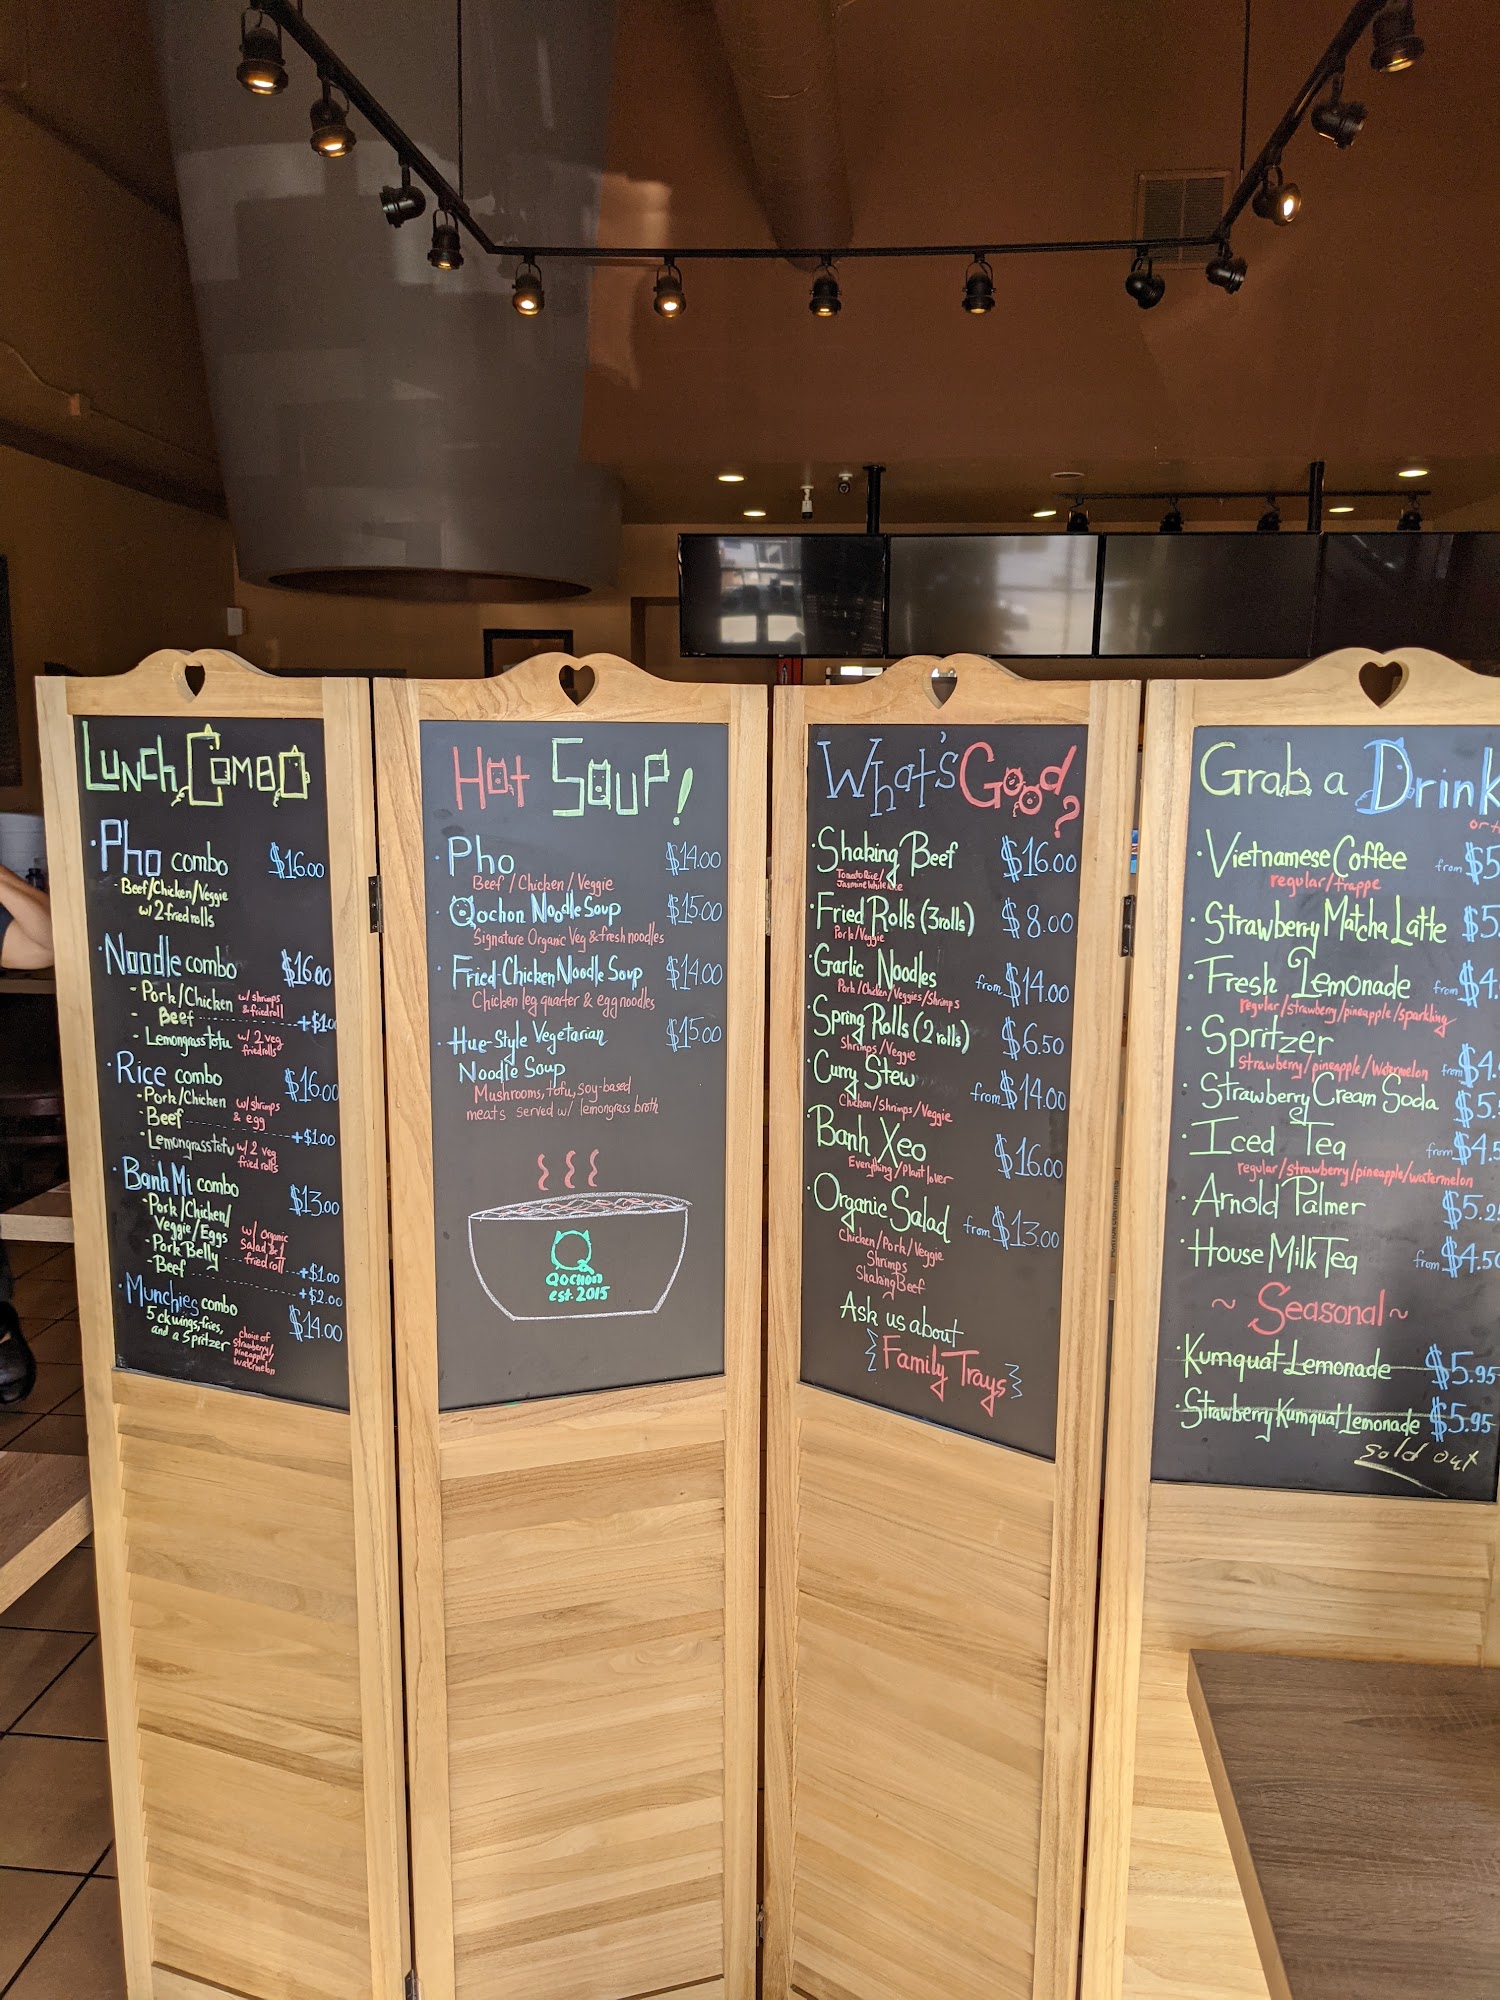 Lunch Combo
· Pho combo $16.00
- Beef/Chicken/Veggie
w/ 2 fried rolls
· Noodle combo $16.00
- Pork/Chicken w/ shrimps
& friedroll
- Beef +$1.00
- Lemongrass Tofu w/ 2 veg
friedrolls
· Rice combo $16.00
- Pork/Chicken w/ shrimps
& egg
- Beef +$1.00
- Lemongrass Tofu w/ 2 veg
fried rolls
· Banh Mi combo $13.00
- Pork/Chicken/
Veggie/Eggs w/ organic
Salad & 1
friedroll
- Pork Belly +$1.00
- Beef +$2.00
· Munchies combo $14.00
5 ck wings, fries,
and a Spritzer choice of
strawberry/
pineapple/
watermelon
Hot Soup!
· Pho $14.00
Beef / Chicken / Veggie
· Qochon Noodle Soup $15.00
Signature Organic Veg & fresh noodles
· Fried-Chicken Noodle Soup $14.00
Chicken leg quarter & egg noodles
· Hue-Style Vegetarian $15.00
Noodle Soup
Mushrooms, tofu, soy-based
meats served w/ lemongrass broth
Qochon
est. 2015
What's Good?
· Shaking Beef $16.00
Tomato Rice/
Jasmine White Rice
· Fried Rolls (3 rolls) $8.00
Pork/Veggie
· Garlic Noodles from $14.00
Pork/Chicken/Veggies/Shrimps
· Spring Rolls (2 rolls) $6.50
Shrimps/Veggie
· Curry Stew from $14.00
Chicken/Shrimps/Veggie
· Banh Xeo $16.00
Everything/Plant lover
· Organic Salad from $13.00
Chicken/Pork/Veggie
Shrimps
Shaking Beef
Ask us about
Family Trays
Grab a Drink
· Vietnamese Coffee from $5
regular/frappe
· Strawberry Matcha Latte $5.
· Fresh Lemonade from $4.
regular/strawberry/pineapple/sparkling
· Spritzer from $4.
Strawberry/pineapple/Watermelon
· Strawberry Cream Soda $5.
· Iced Tea from $4.5
regular/strawberry/pineapple/watermelon
· Arnold Palmer $5.2
· House Milk Tea from $4.50
~ Seasonal ~
· Kumquat Lemonade $5.95
· Strawberry Kumquat Lemonade $5.95
Sold out